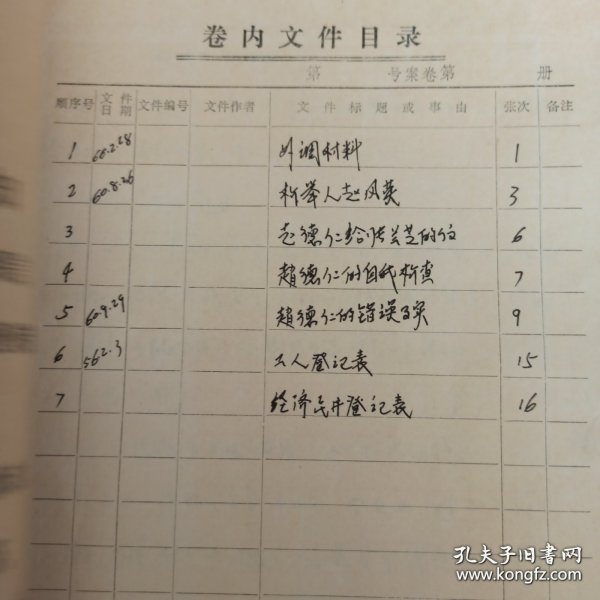 卷内文件目录
第 号案卷第 册
顺序号 文件日期 文件编号 文件作者 文件标题或事由 张次 备注
1 60.2.28 外调材料 1
2 60.8.26 检举人赵凤英 3
3 赵德仁给张兰芝的信 6
4 趙德仁的自我检查 7
5 60.9.29 趙德仁的错误事实 9
6 56 2.3 工人登记表 15
7 经济民井登记表 16
孔夫子旧书网
www.kongfz.com